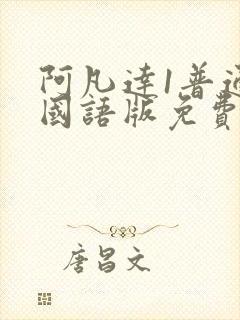 阿凡達1普通
國語版免費
唐昌文